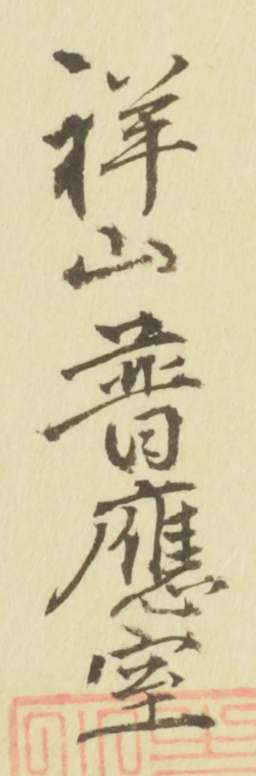 祥山普應室